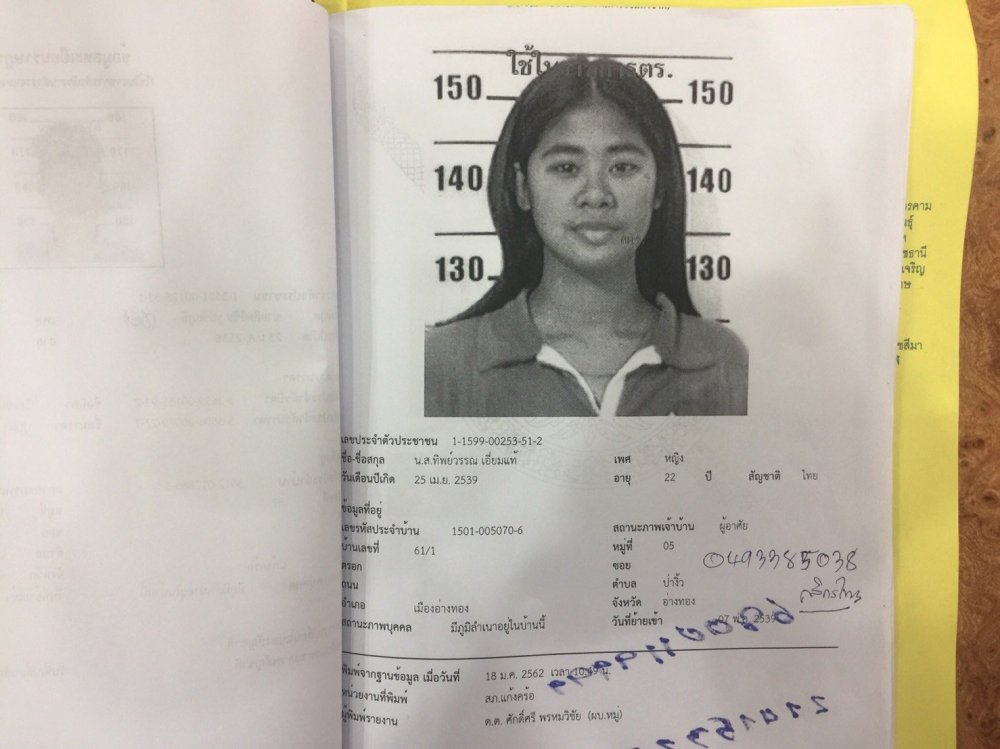 ใช้ใน
150 150
140 140
130 130
เลขประจำตัวประชาชน 1-1599-00253-51-2
ชื่อ-ชื่อสกุล น.ส.ทิพย์วรรณ เอี่ยมแท้ เพศ หญิง
วันเดือนปีเกิด 25 เม.ย. 2539 อายุ 22 ปี สัญชาติ ไทย
ข้อมูลที่อยู่
เลขรหัสประจำบ้าน 1501-005070-6 สถานะภาพเจ้าบ้าน ผู้อาศัย
บ้านเลขที่ 61/1 หมู่ที่ 05
ตรอก ซอย 0493385038
ถนน ตำบล ป่างิ้ว กสิกรไทย
อำเภอ เมืองอ่างทอง จังหวัด อ่างทอง
สถานะภาพบุคคล มีภูมิลำเนาอยู่ในบ้านนี้ วันที่ย้ายเข้า 07 พ.ค. 2539
พิมพ์จากฐานข้อมูล เมื่อวันที่ 18 ม.ค. 2562 เวลา 10:49 น.
หน่วยงานที่พิมพ์ สภ.แก้งคร้อ
ผู้พิมพ์รายงาน ด.ต. ศักดิ์ศรี พรหมวิชัย (ผบ.หมู่)